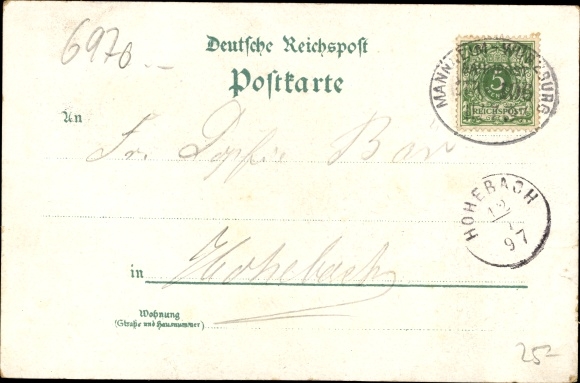 6976
Deutsche Reichspost
Postkarte
MANNHEIM - WÜRZBURG
5
REICHSPOST
An
Fr. Sophie Bär
HOHEBACH
12
97
in Hohebach
Wohnung
(Straße und Hausnummer)
25-